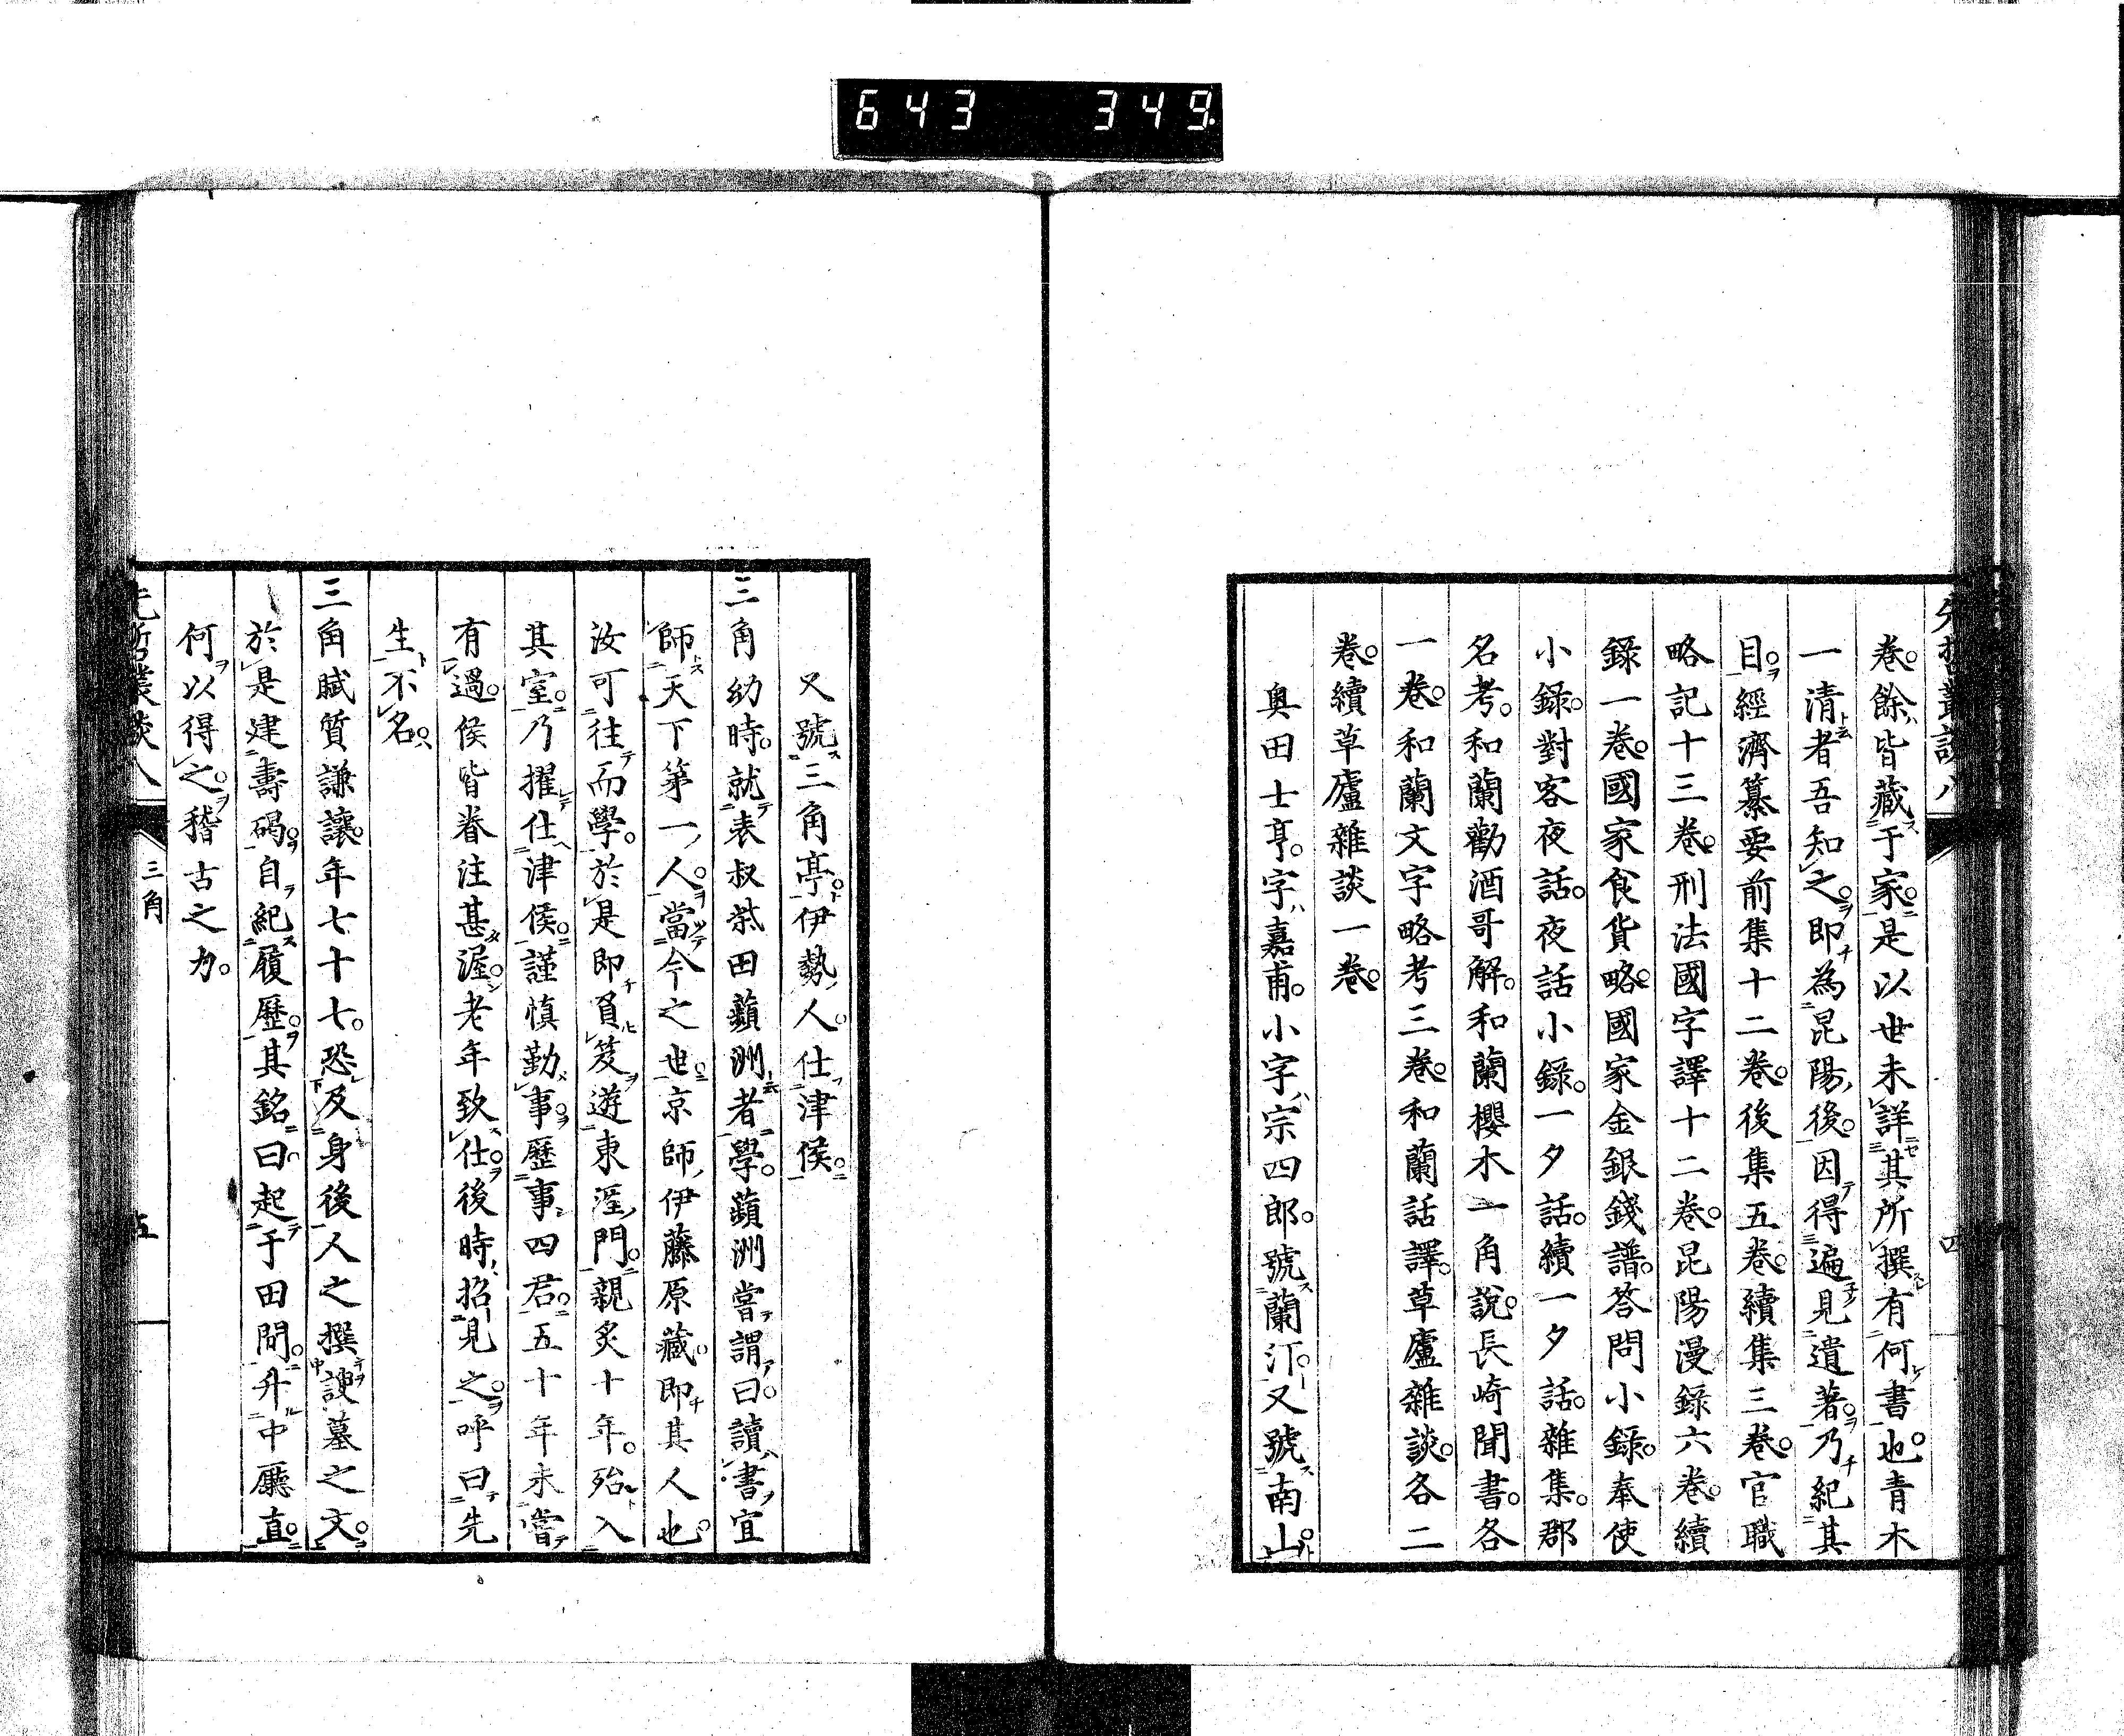 643 349
先哲叢談八
四
卷。餘皆藏于家。是以世未詳其所撰有何書也。青木
一清者吾知之。即為昆陽後。因得遍見遺著。乃紀其
目。經濟纂要前集十二卷。後集五卷。續集三卷。官職
略記十三卷。刑法國字譯十二卷。昆陽漫錄六卷。續
錄一卷。國家食貨略。國家金銀錢譜。答問小錄。奉使
小錄。對客夜話。夜話小錄。一夕話。續一夕話。雜集。郡
名考。和蘭勸酒哥解。和蘭櫻木一角說。長崎聞書。各
一卷。和蘭文字略考三卷。和蘭話譯。草廬雜談。各二
卷。續草廬雜談一卷。
奧田士亨。字嘉甫。小字宗四郎。號蘭汀。又號南山。
又號三角亭。伊勢人。仕津侯。
三角幼時。就表叔柴田蘋洲者學。蘋洲嘗謂曰。讀書宜
師天下第一人。當今之世。京師伊藤原藏。即其人也。
汝可往而學。於是即負笈遊東涯門。親炙十年。殆入
其室。乃擢仕津侯。謹慎勤事。歷事四君。五十年未嘗
有過。侯皆眷注甚渥。老年致仕。後時招見之。呼曰先
生不名。
三角賦質謙讓。年七十七。恐及身後人之撰諛墓之文。
於是建壽碣。自紀履歷。其銘曰。起于田間。升中廳直。
何以得之。稽古之力。
先哲叢談八
三角
五